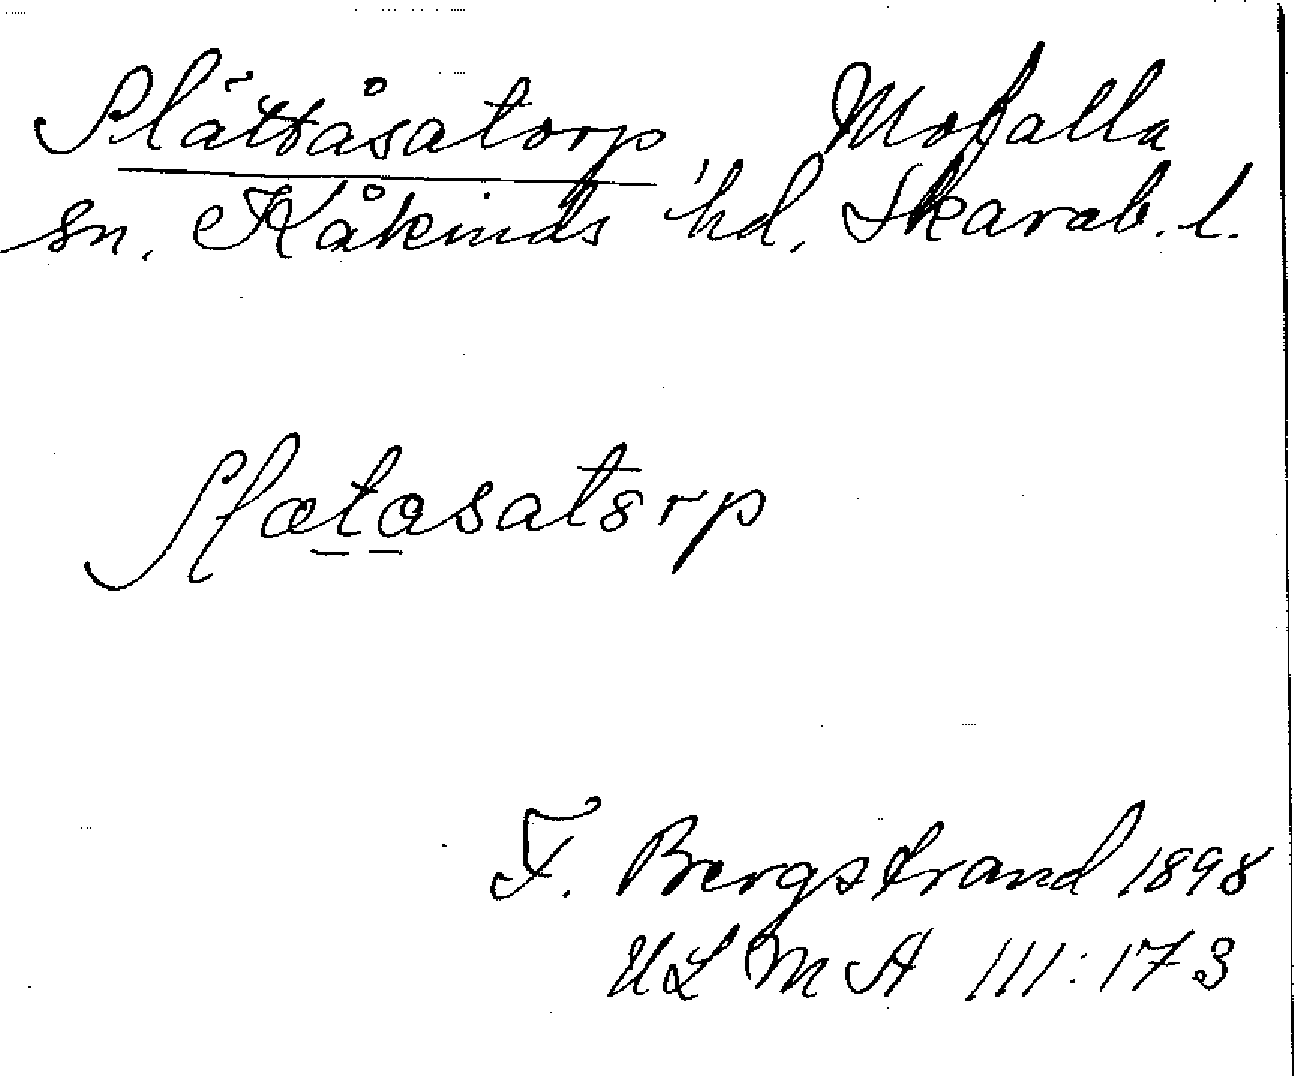 Slättåsatorp Mofalla
sn. Kåkinds hd. Skarab. l.
Slætasatorp
F. Bergstrand 1898
ULMA 111:173